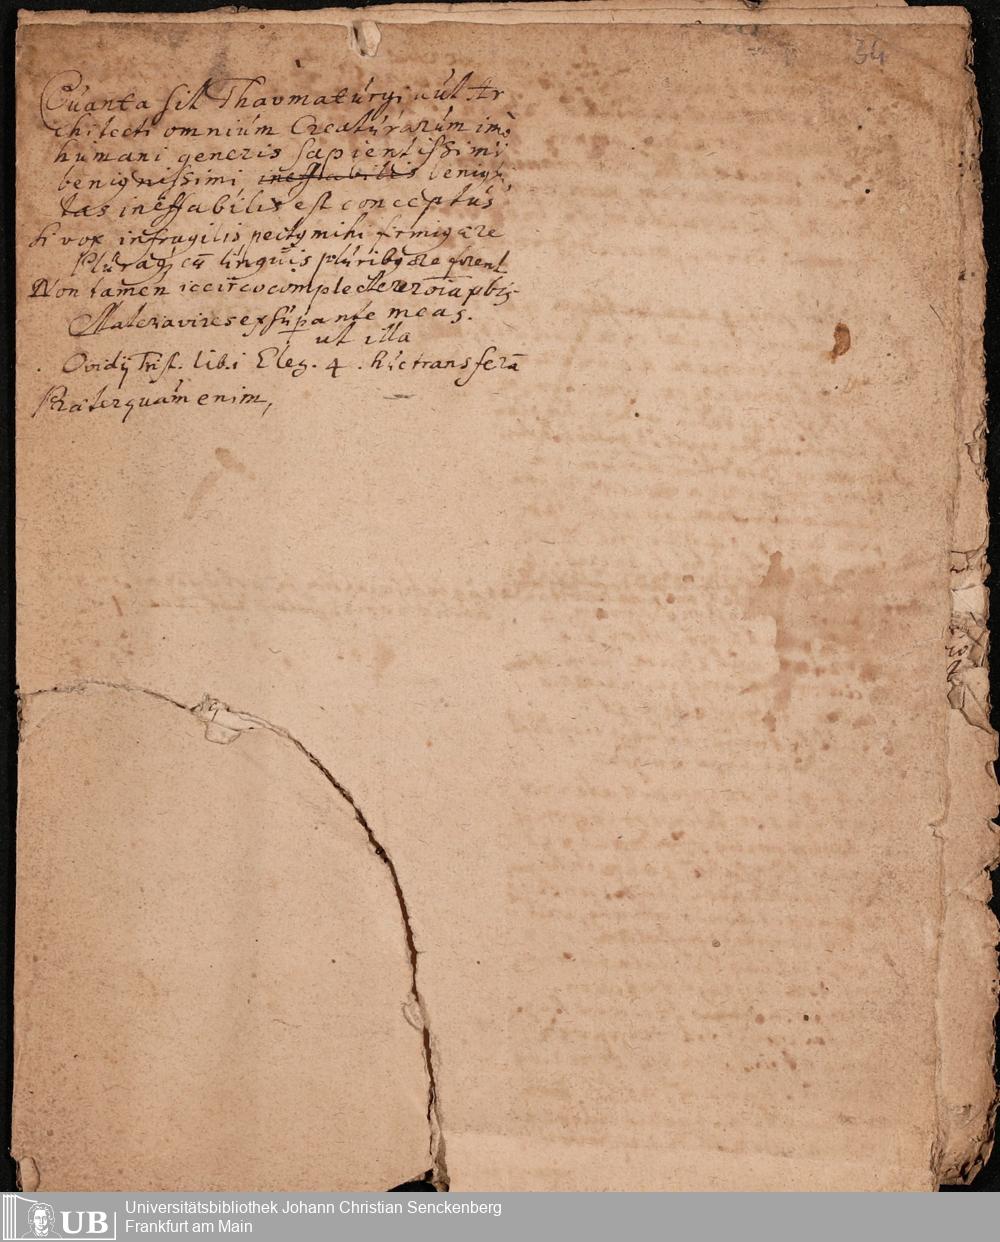 34
Quanta sit Thavmatúrgi aút Ar
chitecti omniúm Creatúrarúm imò
húmani generis sapientissimi
benignissimi ineffabilis benigni
tas ineffabilis est conceptús
si vox infragilis pectꝰ mihi firmiꝰ ære
Plúraqꝫ cū lingúis plúribꝰ ora forent
Non tamen iccirco complecterer oīa verbis
Materia vires exsúꝑante meas.
út illa
Ovidij Trist. lib. i Eleg. 4. húc transferā
Præterquám enim,
UB
Universitätsbibliothek Johann Christian Senckenberg
Frankfurt am Main